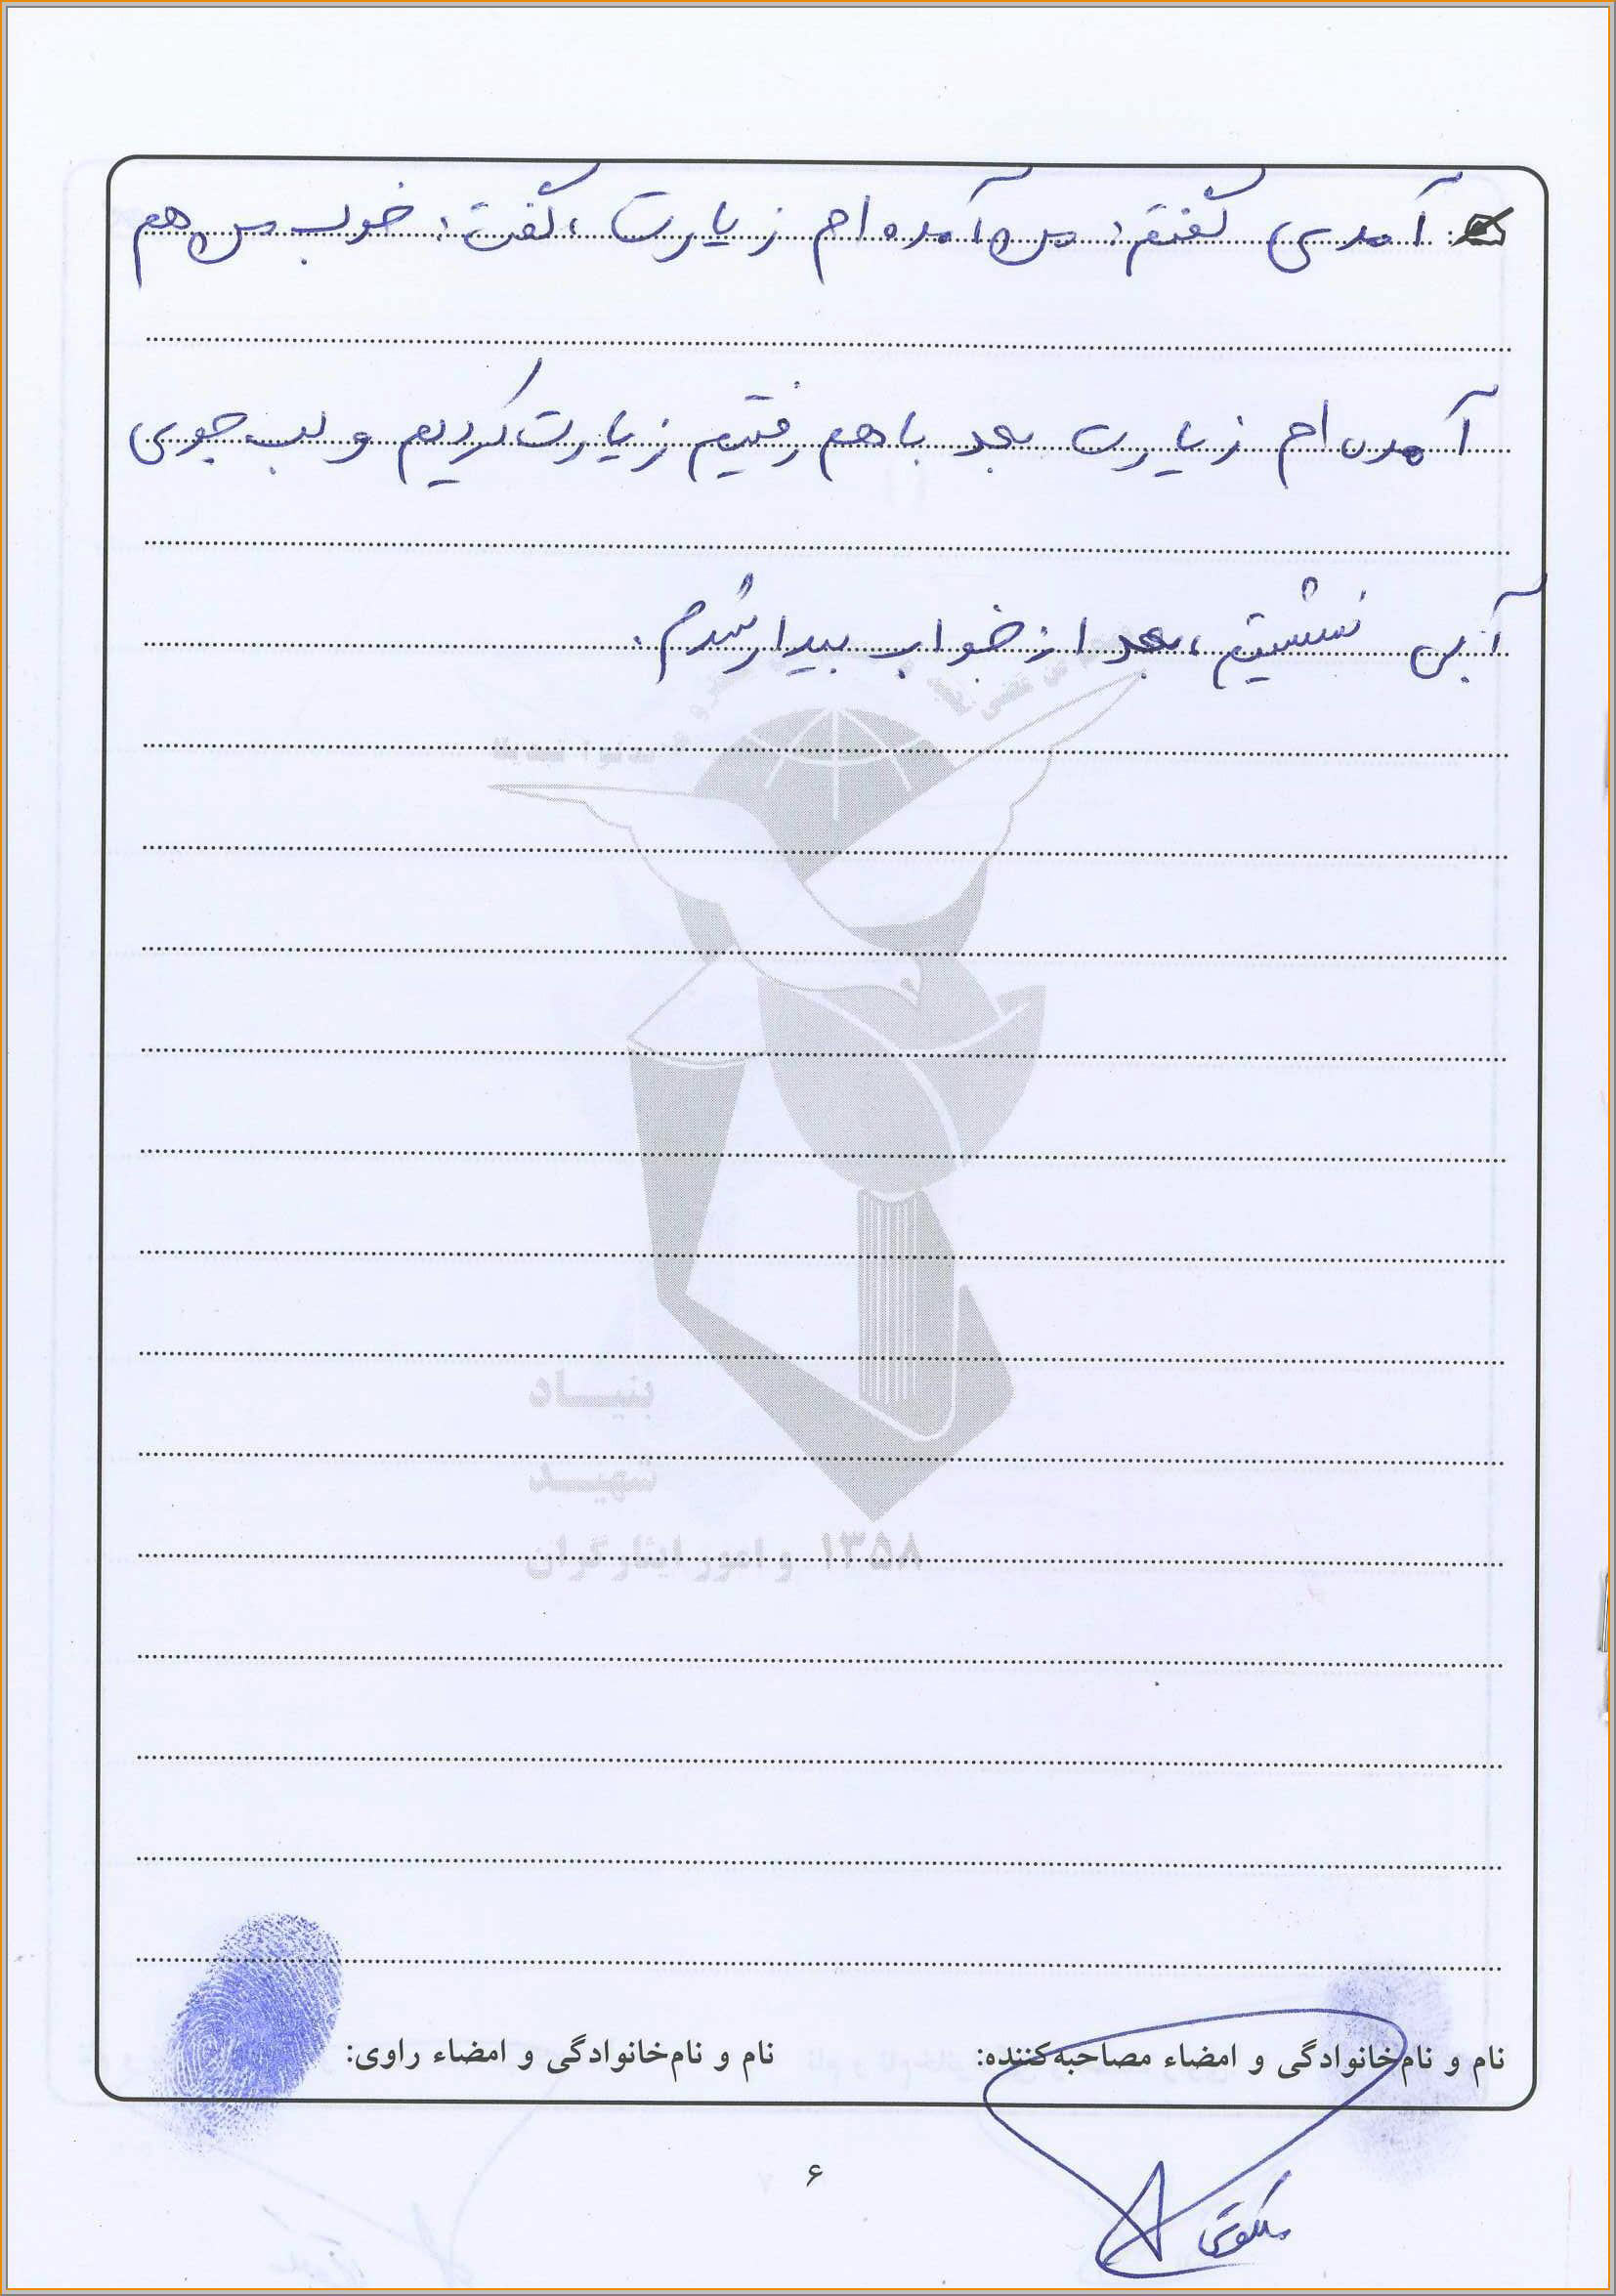 آمدی گفتم: من آمده‌ام زیارت، گفت: خوب من هم
آمده‌ام زیارت بعد با هم رفتیم زیارت کردیم و لب جوی
آبی نشستیم، بعد از خواب بیدار شدم.
بنیاد
شهید
و امور ایثارگران ۱۳۵۸
نام و نام‌خانوادگی و امضاء مصاحبه‌کننده:
نام و نام‌خانوادگی و امضاء راوی:
۶
ملکوتی